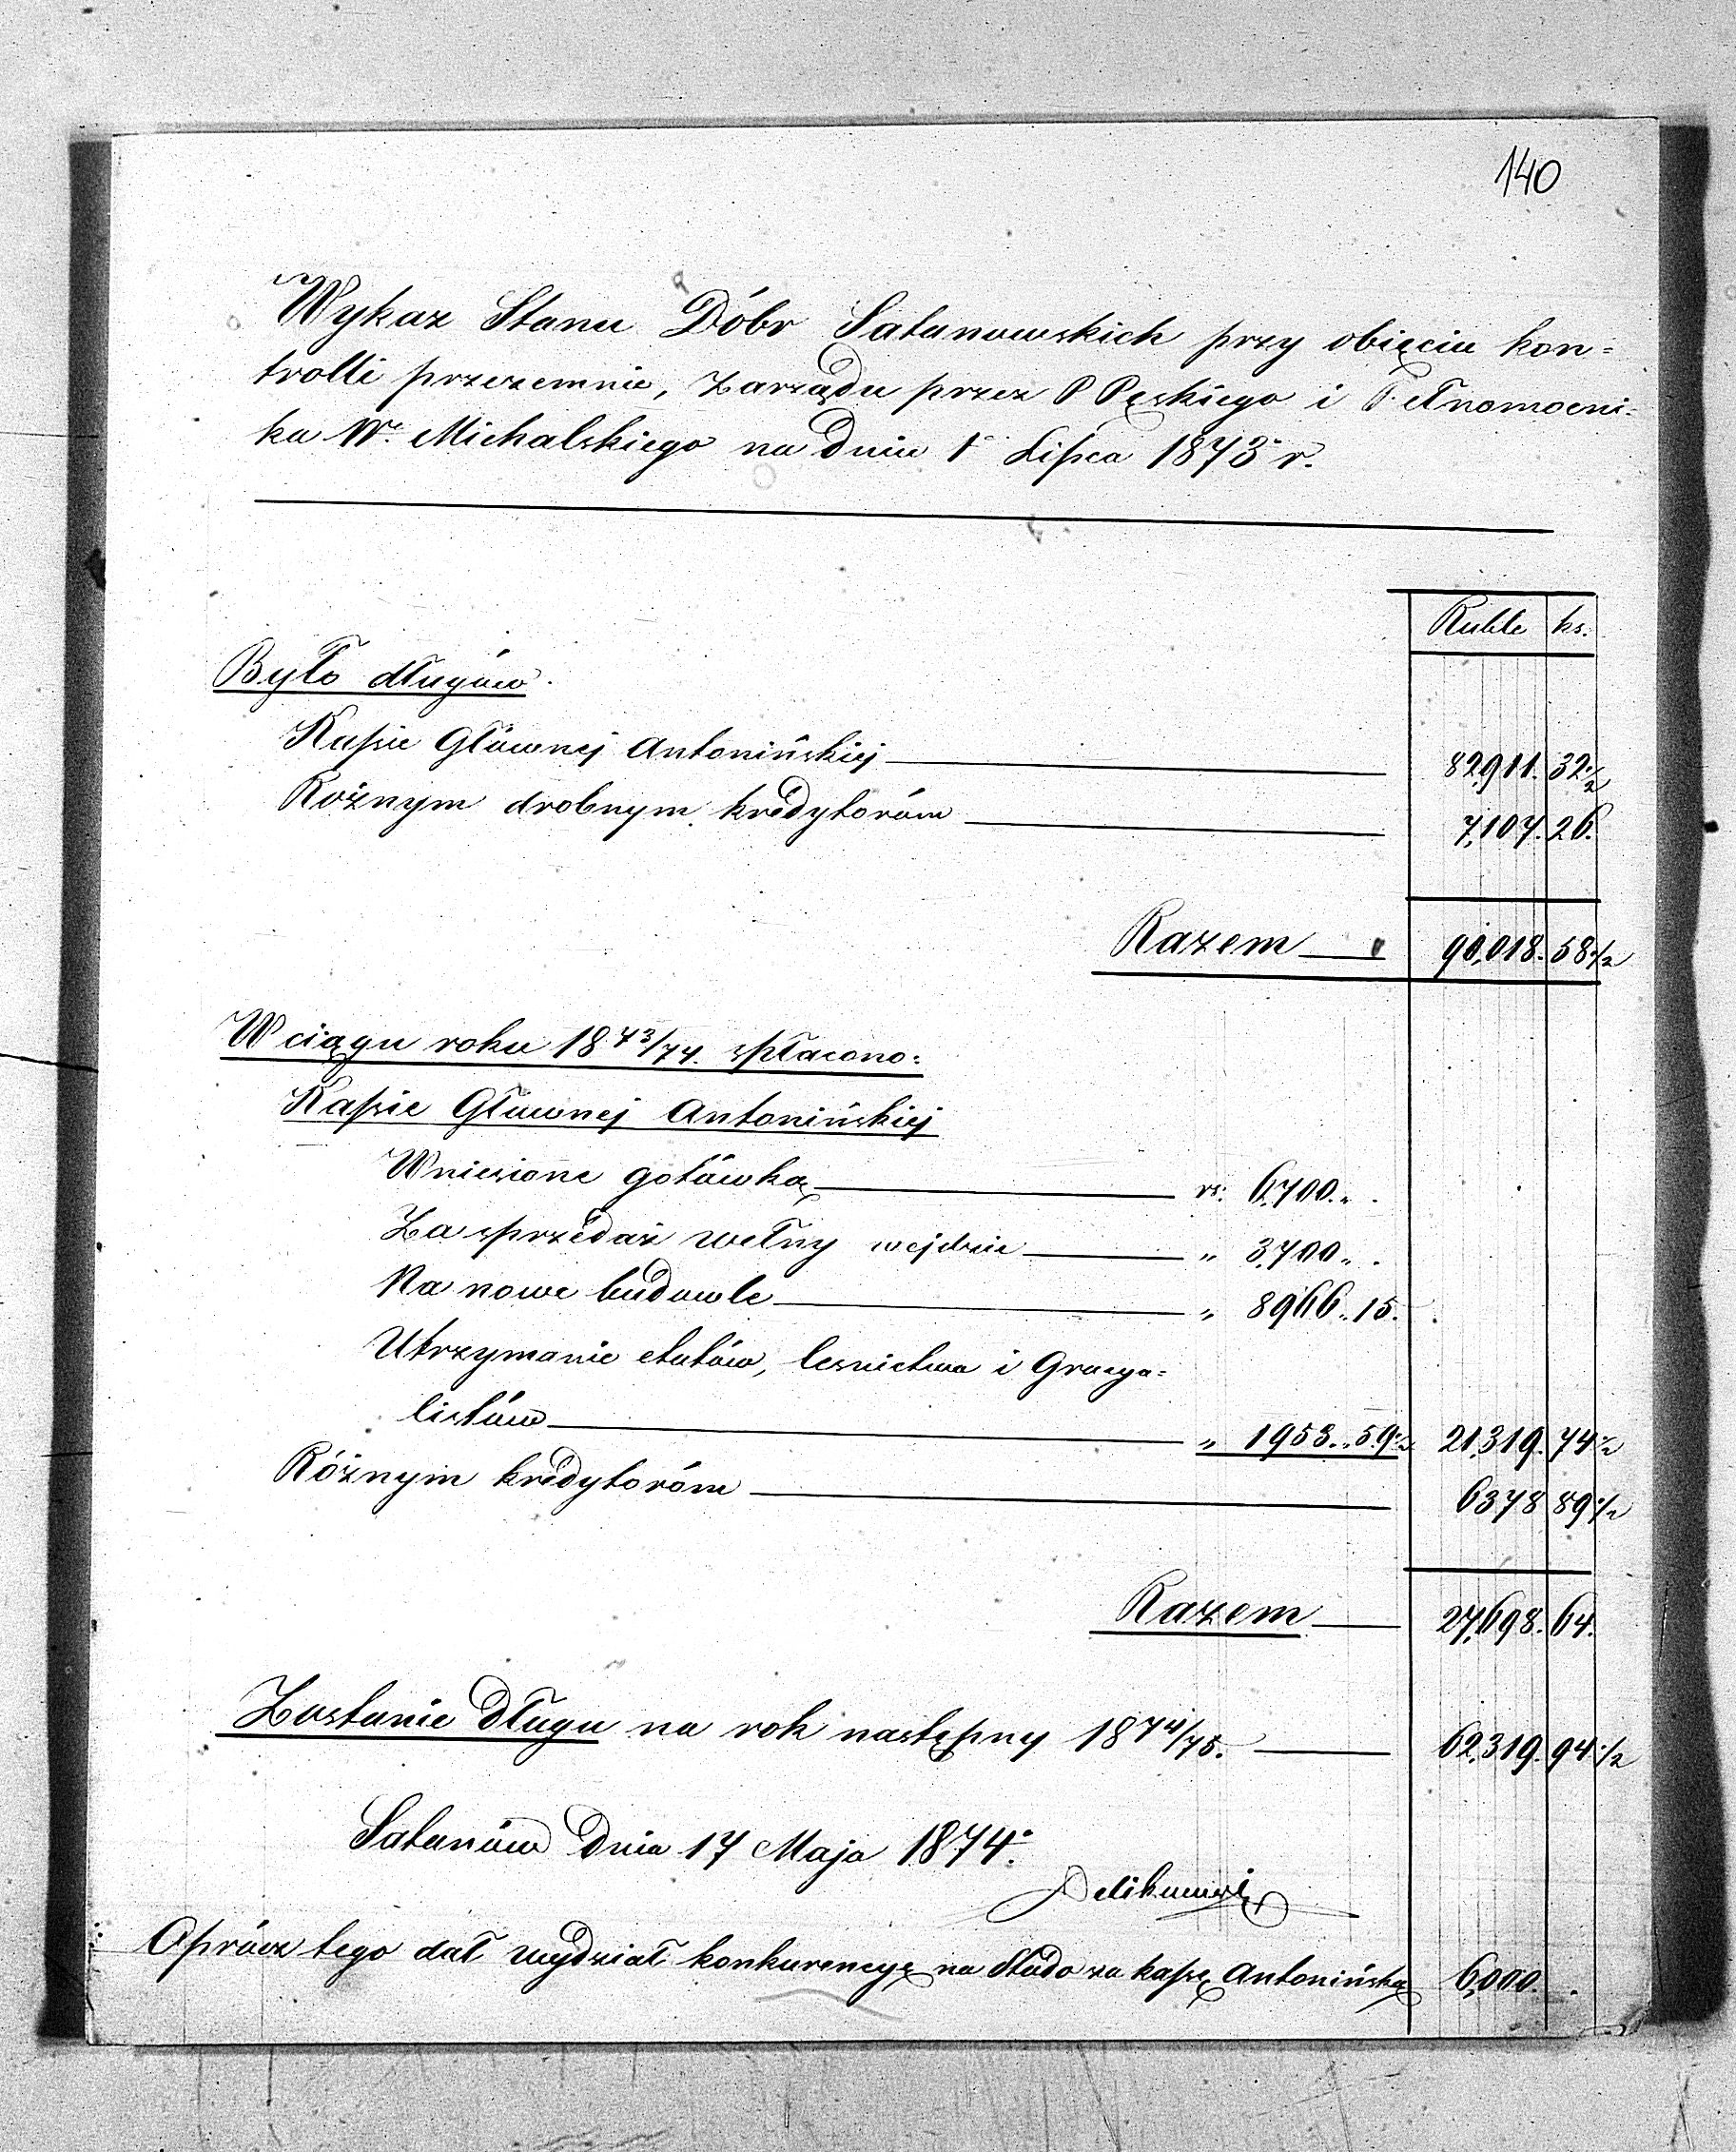 140
Wykaz Stanu Dóbr Satanowskich przy obięciu kon=
trolli przezemnie, Zarządu przez P Pęskiego i Pełnomocni=
ka W. Michalskiego na dniu 1° Lipca 1873 r.
Ruble ks.
Było długów.
Kassie Głównej Antonińskiej 82,911. 32 1/2
Rożnym drobnym kredytoróm 7,107. 26.
Razem 90,018. 58 1/2
W ciągu roku 1873/74. spłacono:
Kassie Głównej Antonińskiej
Wniesione gotówką rs: 6,700. „ .
Za sprzedaż wełny wejdzie „ 3,700 „ .
Na nowe budowle „ 8966 „ 15.
Utrzymanie etatów, lesnictwa i Gracya=
listów „ 1953 „ 59 1/2 21,319. 74 1/2
Różnym kredytoróm 6378 89 1/2
Razem 27,698. 64.
Zostanie długu na rok następny 1874/75. 62,319. 94 1/2
Satanów dnia 17 Maja 1874.
Oprócz tego dał wydział konkurencyę na Stado za kassę Antonińską 6,000. .